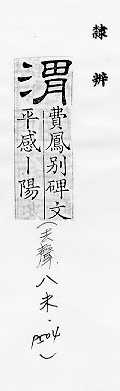 隸辨
渭
費鳳別碑文
平感丨陽
(去聲.八未.P504)